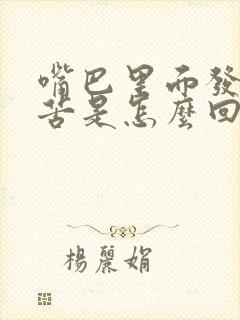 嘴巴里而發
苦是怎麼回
楊麗娟